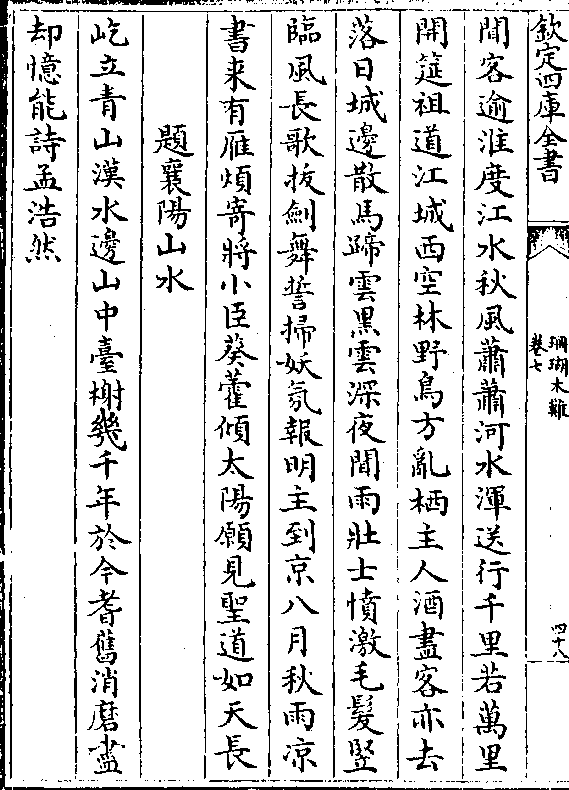 欽定四庫全書
珊瑚木難
卷七
四十八
聞客逾淮度江水秋風蕭蕭河水渾送行千里若萬里
開筵祖道江城西空林野鳥方亂栖主人酒盡客亦去
落日城邊散馬蹄雲黑雲深夜聞雨壯士憤激毛髮豎
臨風長歌拔劍舞誓掃妖氛報明主到京八月秋雨凉
書来有雁煩寄將小臣葵藿傾太陽願見聖道如天長
題襄陽山水
屹立青山漢水邊山中臺榭幾千年於今耆舊消磨盡
却憶能詩孟浩然